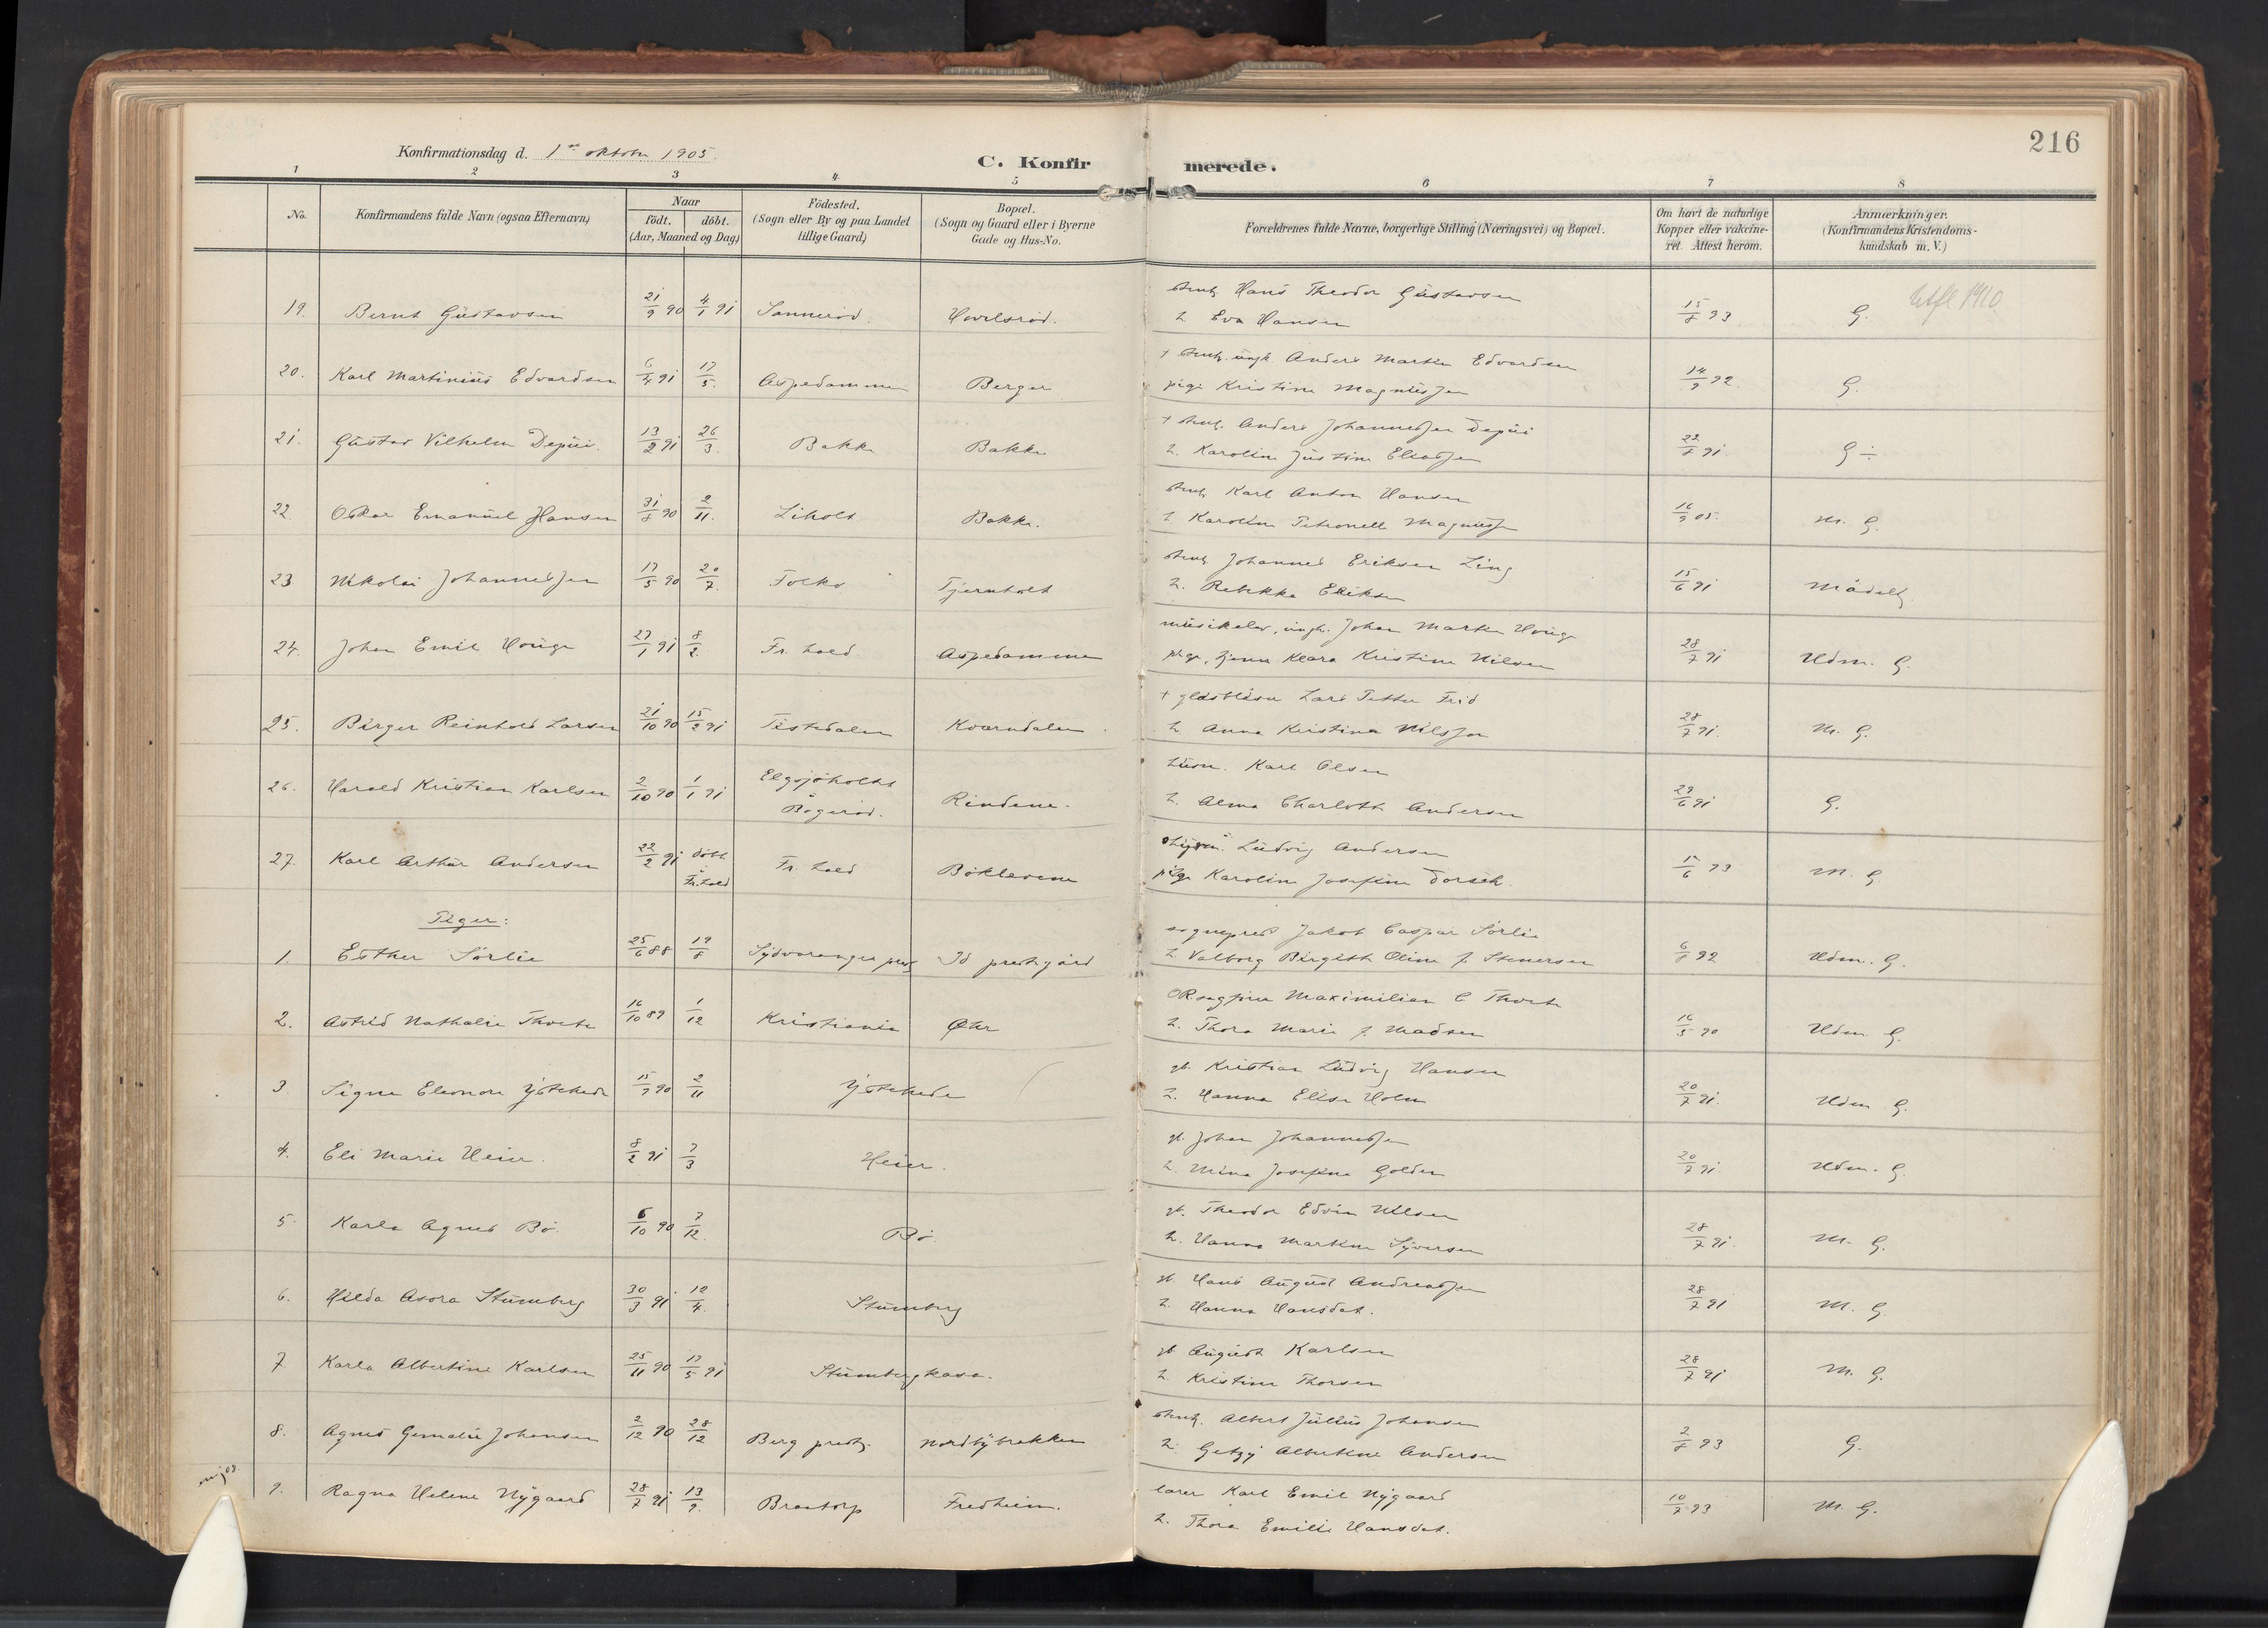 216
Konfirmationsdag d. 1ste oktober 1905.
C. Konfirmerede.
1 2 3 4 5 6 7 8
No.
Konfirmandens fulde Navn (ogsaa Efternavn)
Naar
födt. döbt.
(Aar, Maaned og Dag)
Födested.
(Sogn eller By og paa Landet
tillige Gaard)
Bopæl.
(Sogn og Gaard eller i Byerne
Gade og Hus-No.
Forældrenes fulde Navne, borgerlige Stilling (Næringsvei) og Bopæl.
Om havt de naturlige
Kopper eller vakcine-
ret. Attest herom.
Anmærkninger.
(Konfirmandens Kristendoms-
kundskab m. V.)
19. Bernt Gustavsen 21/9 90 4/1 91 Sannerød. Hovelsrød. Hans Theodor Gustavsen 15/8 93 G. 1910
h. Eva Hansen
20. Karl Martinius Edvardsen 6/4 91 17/5. Aspedammen Berger † ungk Anders Martin Edvardsen 14/9 92. G.
pige Kristine Magnussen
21. Gustav Vilhelm Depui. 13/2 91 26/3. Bakke Bakke † Anders Johannessen Depui 22/8 91 G ÷
h. Karoline Justine Eliassen
22. Oskar Emanuel Hansen 31/8 90 2/11. Liholt Bakke. Karl Anton Hansen 16/9 05. M. G.
h Karoline Petronelle Magnussen
23 Nikolai Johannessen 17/5 90 20/7. Folkø Tjernholt Johannes Eriksen Ling 15/6 91 Mådelg
h. Rebekka Eriksen
24. Johan Emil Houge 27/1 91 8/2. Fr.hald Aspedammen musikelev, ungk. Johan Martin Houge 28/7 91 Udm. G.
pige, tjener Klara Kristine Nilsen
25. Birger Reinhold Larsen 21/10 90 15/2 91 Tistedalen Kvarndalen † glasblåser Lars Petter Frid 28/7 91. M. G.
h. Anna Kristina Nilsson
26. Harald Kristian Karlsen 2/10 90 1/1 91 Elgsjøholtet Rindene. husm. Karl Olsen 29/6 91 G.
Bøgerød. h. Alma Charlotte Andersen
27. Karl Arthur Andersen 22/2 91 døbt Fr.hald Fr. hald Bøklevene Ludvig Andersen 17/6 93 M. G.
pige Karoline Josefine Dorseh.
Piger:
1. Esther Sørlie 25/6 88 19/8 Sydvaranger preg Id prestegård sogneprest Jakob Caspar Sørlie 6/8 92 Udm. G.
h. Valborg Birgitte Oline f. Stenersen
2. Astrid Nathalie Thorte 16/10 89 1/12 Kristiania Øhr Maximilian C Thorte 16/5 90 Udm. G.
h. Thora Marie f. Madsen
3. Signe Eleonore Ystehede 15/9 90 2/11 Ystehede gb. Kristian Ludvig Hansen 20/7 91. Udm G.
h. Hanna Elise Holm
4. Eli Marie Heier. 8/2 91 7/3 Heier. gb. Johan Johannessen 20/7 91. Udm. G.
h. Mina Josefine Golden
5. Karla Agnes Bø. 6/10 90 7/12. Bø. gb. Theodor Edvin Nilsen 28/7 91. M. G.
h. Hanna Martine Syversen
6. Hilda Asora Stumberg 30/3 91 12/4. Stumberg gb Hans August Andreassen 28/7 91 M. G.
h. Hanna Hansdat.
7. Karla Albertine Karlsen 25/11 90 17/5 91 Stumbergkasa. gb August Karlsen 28/7 91 M. G.
h. Kristine Thorsen
8. Agnes Gemalie Johansen 2/12 90 28/12 Berg prestg. Nordbybrakken Albert Julius Johansen 2/8 93 G.
h. Getzy Albertine Andersen
9. Ragna Helene Nygaard 28/7 91 13/9. Braatorp Fredheim. lærer Karl Emil Nygaard 10/7 93 M. G.
h. Thora Emilie Hansdat.